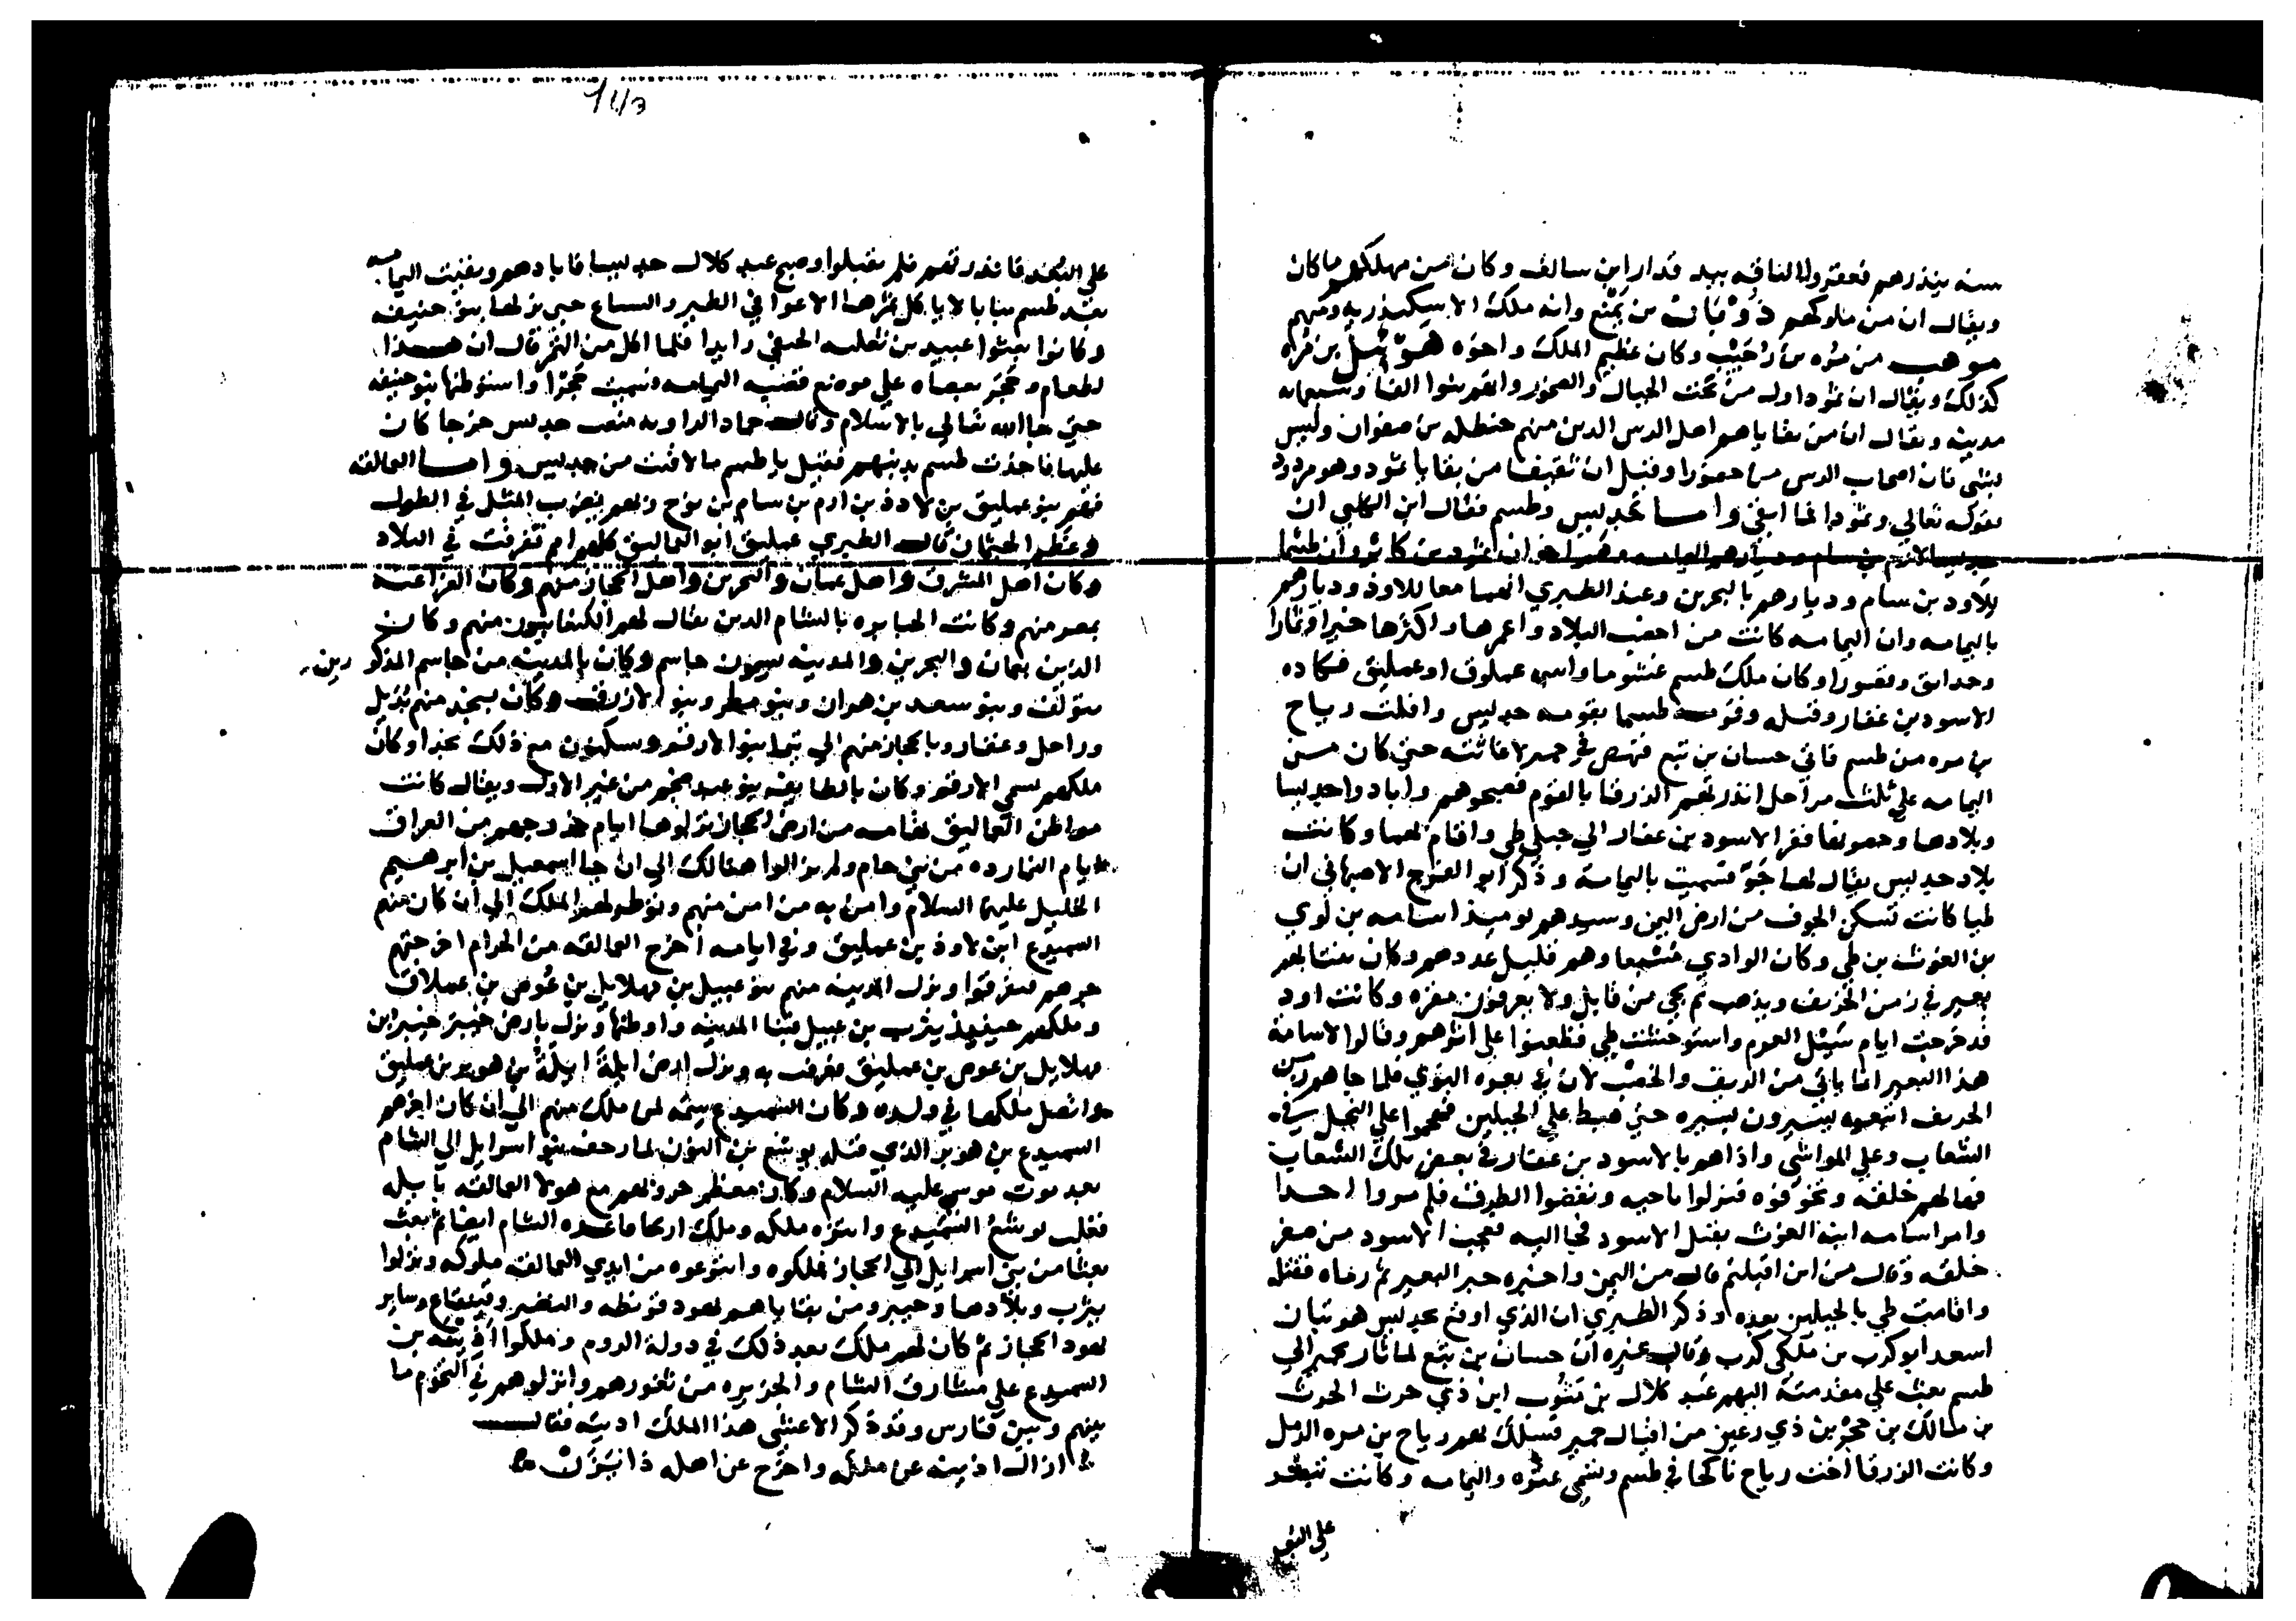 سنه ينذرهم فعقروا الناقه بيد قدار ابن سالف وكان من مهلكهم ما كان
ويقال ان من ملوكهم ذوبان بن يمنع وانه ملك الاسكندريه ومنهم
موهب من مره بن رحيب وكان عظيم الملك واخوه هوبيل بن مره
كذلك ويقال ان ثمود اول من نحت الجبال والصخور وانهم بنوا الفا وسبعمايه
مدينه ويقال ان من بقاياهم اهل الرس الذين منهم حنظله بن صفوان وليس
بشي فان اصحاب الرس من حضورا وقيل ان ثقيفا من بقايا ثمود وهو مردود
بقوله تعالي وثمود فما ابقي واما جديس وطسم فقال ابن الكلبي ان
جديسا لارم بن سام وديارهم اليمامه وهم اخوان ثمود بن كاثر وان طسما
للاود بن سام وديارهم بالبحرين وعند الطبري انهما معا للاوذ وديارهم
باليمامه وان اليمامه كانت من اخصب البلاد واعمرها واكثرها خيرا وثمارا
وحدايق وقصورا وكان ملك طسم غشوما واسمه عملوق او عمليق فكاده
الاسود بن غفار وقتله وقومه طسما بقومه جديس وافلت رباح
بن مره من طسم فاتي حسان بن تبع فنهض في حمير لاغاثته حتي كان من
اليمامه علي ثلث مراحل انذرتهم الزرقا بالقوم فصبحوهم وابادوا جديسا
وبلادها وحصونها ففر الاسود بن غفار الي جبلي طي واقام بهما وكانت
بلاد جديس يقال لها جو فسميت باليمامة وذكر ابو الفرج الاصبهاني ان
طيا كانت تسكن الجوف من ارض اليمن وسيدهم يوميذ اسامه بن لوي
بن الغوث بن طي وكان الوادي مسبعا وهم قليل عددهم وكان ينتابهم
بعير في زمن الخريف ويذهب ثم يجي من قابل ولا يعرفون مقره وكانت ازد
قد خرجت ايام سيل العرم واستوحشت طي فظعنوا علي اثرهم وقالوا لاسامة
هذا البعير انما ياتي من الريف والخصب لان في بعره النوي فلما جاهم زمن
الخريف اتبعوه يسيرون لسيره حتي هبط علي الجبلين فهجموا علي النخل في
الشعاب وعلي المواشي واذا هم بالاسود بن غفار في بعض تلك الشعاب
فهالهم خلقه وتخوفوه فنزلوا ناحيه ونفضوا الطريق فلم يروا احدا
وامر اسامه ابنه الغوث بقتل الاسود فجا اليه فعجب الاسود من صغر
خلقه وقال من اين اقبلتم قال من اليمن واخبره خبر البعير ثم رماه فقتله
واقامت طي بالجبلين بعده وذكر الطبري ان الذي اوقع بجديس هو تبان
اسعد ابو كرب بن ملكي كرب وقال غيره ان حسان بن تبع لما ثار بحمير الي
طسم بعث علي مقدمته اليهم عبد كلال بن مثوب ابن ذي حرث الحرث
بن مالك بن حجر بن ذي رعين من اقيال حمير فسلك بهم رباح بن مره الرمل
وكانت الزرقا اخت رباح ناكحا في طسم وتسمي عنزه واليمامه وكانت تبصر
علي البعد
علي البعد فانذرتهم فلم يقبلوا وصبح عبد كلال جديسا فابادهم وبقيت اليمامه
بعد طسم يبابا لا ياكل ثمرها الا عوافي الطير والسباع حتي نزلها بنو حنيفه
وكانوا بعثوا عبيد بن ثعلبه الحنفي رايدا فلما اكل من الثمر قال ان هذا
لطعام وحجر بعصاه علي موضع قصبه اليمامه فسميت حجرا واستوطنها بنو حنيفه
حتي جا الله تعالي بالاسلام وقال حماد الراويه منعت جديس خرجا كان
عليها فاخذت طسم بدينهم فقيل يا طسم ما لاقيت من جديس واما العمالقه
فهم بنو عمليق بن لاوذ بن ارم بن سام بن نوح وبهم يضرب المثل في الطول
وعظم الجثمان قال الطبري عمليق ابو العماليق كلهم امم تفرقت في البلاد
وكان اهل المشرق واهل عمان والبحرين واهل الحجاز منهم وكان الفراعنه
بمصر منهم وكانت الجبابره بالشام الذين يقال لهم الكنعانيون منهم وكان
الذين بعمان والبحرين والمدينه يسمون جاسم وكان بالمدينه من جاسم المذكورين
بنو لف وبنو سعد بن هزان وبنو مطر وبنو الازرق وكان بنجد منهم بديل
وراحل وغفار وبالحجاز منهم الي تيما بنو الارقم ويسكنون مع ذلك نجدا وكان
ملكهم يسمي الارقم وكان بالطايف بنو عبد ضخم من غير الاول ويقال كانت
مواطن العماليق تهامه من ارض الحجاز نزلوها ايام خروجهم من العراق
ايام النمارده من بني حام ولم يزالوا هنالك الي ان جا اسمعيل بن ابرهيم
الخليل عليهما السلام وامن به من امن منهم وتوطد لهم الملك الي ان كان منهم
السميدع ابن لاوذ بن عمليق وفي ايامه اخرج العمالقه من الحرام اخرجتهم
جرهم فتفرقوا ونزل المدينه منهم بنو عبيل بن مهلايل بن عوص بن عملاق
وملكهم حينيذ يثرب بن عبيل فبنا المدينه واوطنها ونزل بارض خيبر خيبر ابن
مهلايل بن عوص بن عمليق فعرفت به ونزل ارض ايلة ايلة بن هوبر بن عمليق
واتصل ملكها في ولده وكان السميدع سمه لمن ملك منهم الي ان كان اخرهم
السميدع بن هوبر الذي قتله يوشع بن النون لما زحف بنو اسرايل الي الشام
بعد موت موسي عليه السلام وكان معظم حروبهم مع هولا العمالقه بايله
فغلب يوشع السميدع واستره ملكه وملك اريحا قاعده الشام ايضا ثم بعث
بعثا من بني اسرايل الي الحجاز فملكوه وانتزعوه من ايدي العمالقه ملوكه ونزلوا
يثرب وبلادها وخيبر ومن بقاياهم يهود قريظه والنضير وقينقاع وساير
يهود الحجاز ثم كان لهم ملك بعد ذلك في دولة الروم وملكوا اذينه بن
السميدع علي مشارق الشام والجزيره من ثغورهم وانزلوهم في التخوم ما
بينهم وبين فارس وقد ذكر الاعشي هذا الملك اذينه فقال
ازال اذينه عن ملكه واخرج عن اهله ذا يزن